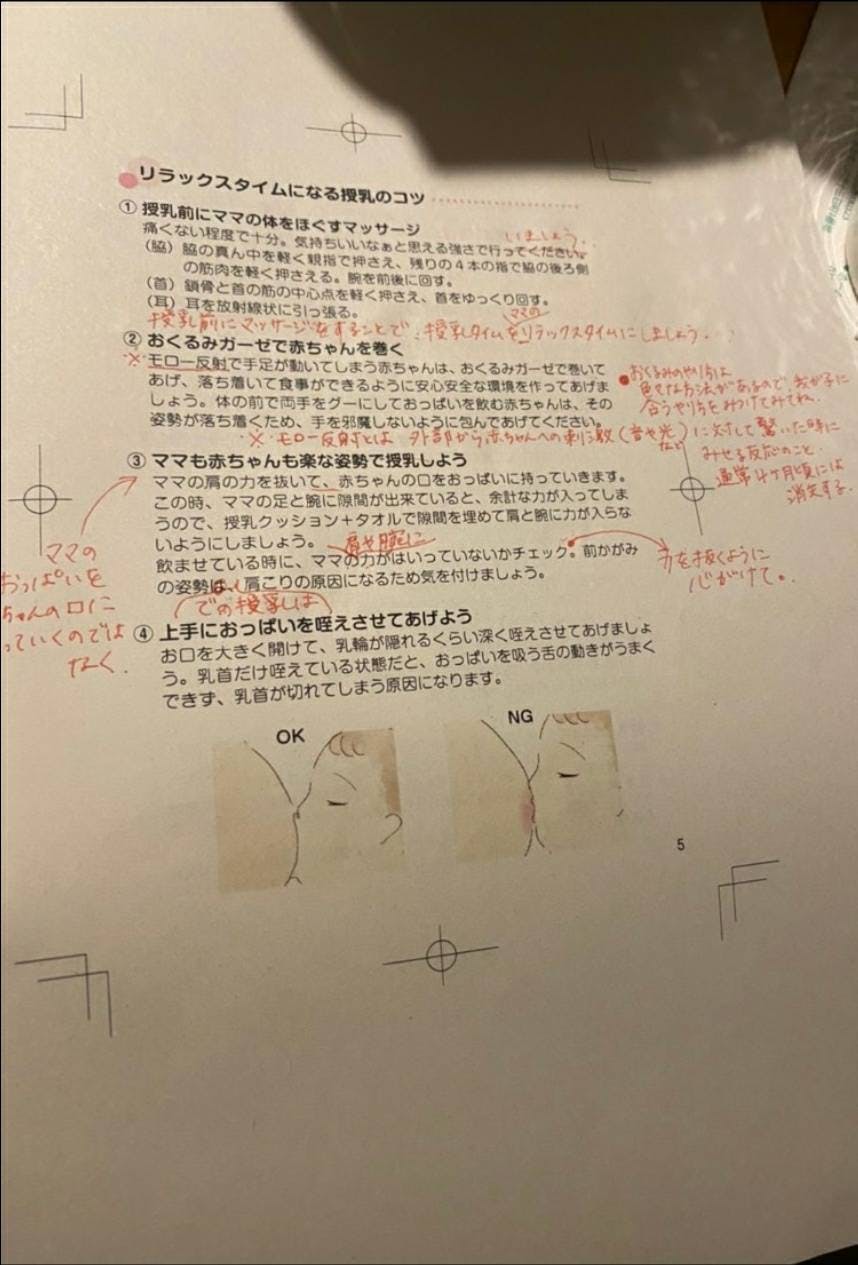 リラックスタイムになる授乳のコツ
① 授乳前にママの体をほぐすマッサージ
いましょう。
痛くない程度で十分。気持ちいいなぁと思える強さで行ってください。
(脇) 脇の真ん中を軽く親指で押さえ、残りの4本の指で脇の後ろ側
の筋肉を軽く押さえる。腕を前後に回す。
(首) 鎖骨と首の筋の中心点を軽く押さえ、首をゆっくり回す。
(耳) 耳を放射線状に引っ張る。
ママの
授乳前にマッサージをすることで、授乳タイムをリラックスタイムにしましょう。
② おくるみガーゼで赤ちゃんを巻く
※モロー反射で手足が動いてしまう赤ちゃんは、おくるみガーゼで巻いて
あげ、落ち着いて食事ができるように安心安全な環境を作ってあげま
しょう。体の前で両手をグーにしておっぱいを飲む赤ちゃんは、その
姿勢が落ち着くため、手を邪魔しないように包んであげてください。
●おくるみのやり方は
色々な方法があるので、我が子に
合うやり方をみつけてみてね。
※モロー反射とは 外部から赤ちゃんへの刺激(音や光など)に対して驚いた時に
みせる反応のこと。
通常4ヶ月頃には
消失する。
③ ママも赤ちゃんも楽な姿勢で授乳しよう
ママの肩の力を抜いて、赤ちゃんの口をおっぱいに持っていきます。
この時、ママの足と腕に隙間が出来ていると、余計な力が入ってしま
うので、授乳クッション+タオルで隙間を埋めて肩と腕に力が入らな
いようにしましょう。
肩や腕に
飲ませている時に、ママの力がはいっていないかチェック。前かがみ
の姿勢は、肩こりの原因になるため気を付けましょう。
での授乳は
力を抜くように
心がけて。
ママの
おっぱいを
ちゃんの口に
っていくのでは
なく、
④ 上手におっぱいを咥えさせてあげよう
お口を大きく開けて、乳輪が隠れるくらい深く咥えさせてあげましょ
う。乳首だけ咥えている状態だと、おっぱいを吸う舌の動きがうまく
できず、乳首が切れてしまう原因になります。
OK
NG
5